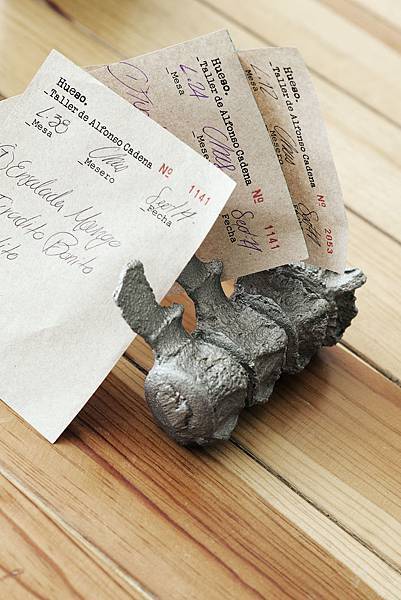 Hueso.
_Taller de Alfonso Cadena
L-38
_Mesa
_Mesero
Nº 1141
Sept 14.
_Fecha
1) Ensalada Mango
Tiradito Bonito
Hueso.
_Taller de Alfonso Cadena
L-24
_Mesa
_Mesero
Nº 1141
Sept 14
_Fecha
Hueso.
_Taller de Alfonso Cadena
_Mesa
_Mesero
Nº 2053
Sept 14
_Fecha